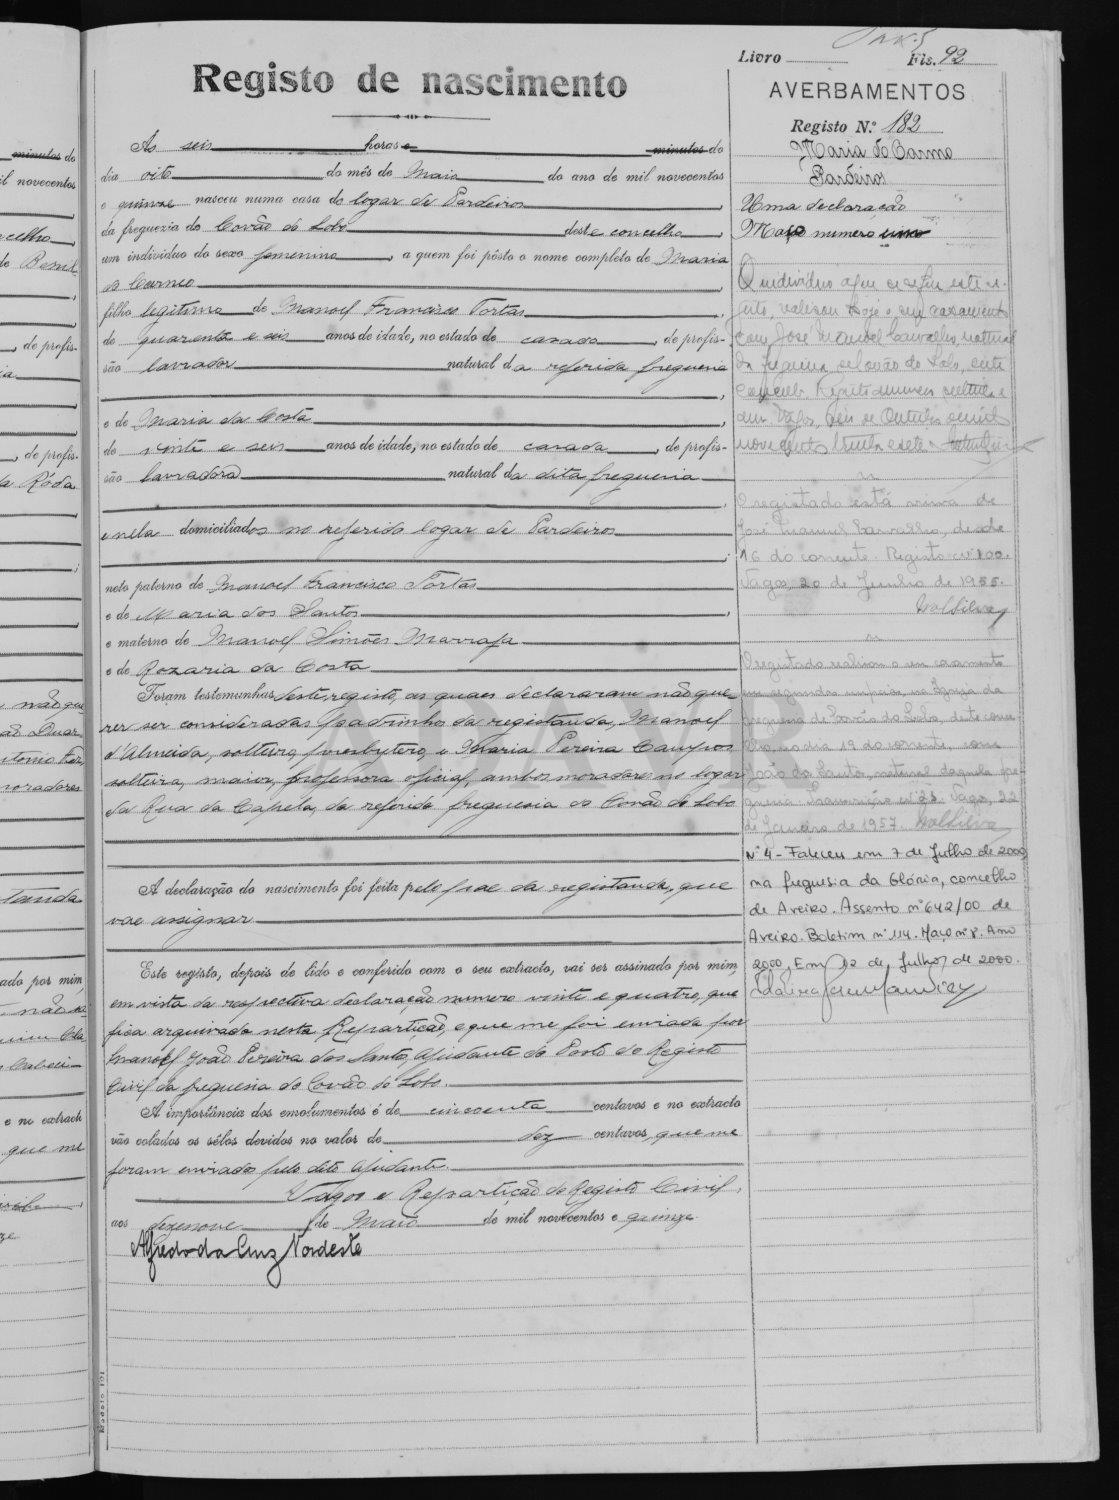 Livro Fls. 92
Registo de nascimento
AVERBAMENTOS
Registo N.º 182
Maria do Carmo
Pardeiros
Uma declaração
Maço numero
As seis horas e minutos do
dia oito do mês de Maio do ano de mil novecentos
e quinze nasceu numa casa do logar de Pardeiros
da freguezia do Covão do Lobo deste concelho,
um individuo do sexo femenino, a quem foi pôsto o nome completo de Maria
do Carmo
filho legitimo de Manoel Francisco Tortas,
de quarenta e seis anos de idade, no estado de casado, de profis-
são lavrador natural da referida freguesia
e de Maria da Costa
de vinte e seis anos de idade, no estado de casada, de profis-
são lavradora natural da dita freguesia
e nela domiciliados no referido logar de Pardeiros
neto paterno de Manoel Francisco Tortas
e de Maria dos Santos
e materno de Manoel Simões Marrafa
e de Rozaria da Costa
Foram testemunhas deste registo, as quaes declararam não que-
rer ser consideradas padrinhos da registanda, Manoel
d'Almeida, solteiro, presbytero, e Maria Pereira Campos
solteira, maior, professora oficial, ambos moradores no logar
da Rua da Capela, da referida freguesia do Covão do Lobo
A declaração do nascimento foi feita pelo pae da registanda, que
vae assignar
Este registo, depois de lido e conferido com o seu extracto, vai ser assinado por mim,
em vista da respectiva declaração numero vinte e quatro, que
fica arquivada nesta Repartição, e que me foi enviada por
Manoel João Pereira dos Santos, Ajudante do Posto do Registo
Civil da freguesia do Covão do Lobo.
A importância dos emolumentos é de cincoenta centavos e no extracto
vão colados os sêlos devidos no valor de dez centavos, que me
foram enviados pelo dito Ajudante.
Vagos e Repartição do Registo Civil,
aos dezenove de Maio de mil novecentos e quinze
Alfredo da Cruz Nordeste
O individuo a que se refere este re-
gisto, realizou hoje o seu casamento
com José Manuel Carvalho, natural
da freguesia de Covão do Lobo, deste
concelho. Registo numero
Vagos, seis de Outubro de mil
novecentos trinta e sete
O registado está viuva de
José Manuel Carvalho, desde
16 do corrente. Registo nº 100.
Vagos, 20 de Junho de 1955.
O registado realizou o seu casamento
em segundas nupcias, na Igreja da
freguesia de Covão do Lobo, deste conce-
lho, no dia 19 do corrente, com
João dos Santos, natural daquela fre-
guesia. Transcrição nº 23. Vagos, 22
de Janeiro de 1957.
Nº 4 - Faleceu em 7 de Julho de 2000,
na freguesia da Glória, concelho
de Aveiro. Assento nº 642/00 de
Aveiro. Boletim nº 114. Maço nº 8. Ano
2000. Em 12 de Julho de 2000.
ADAVR
Modelo 101